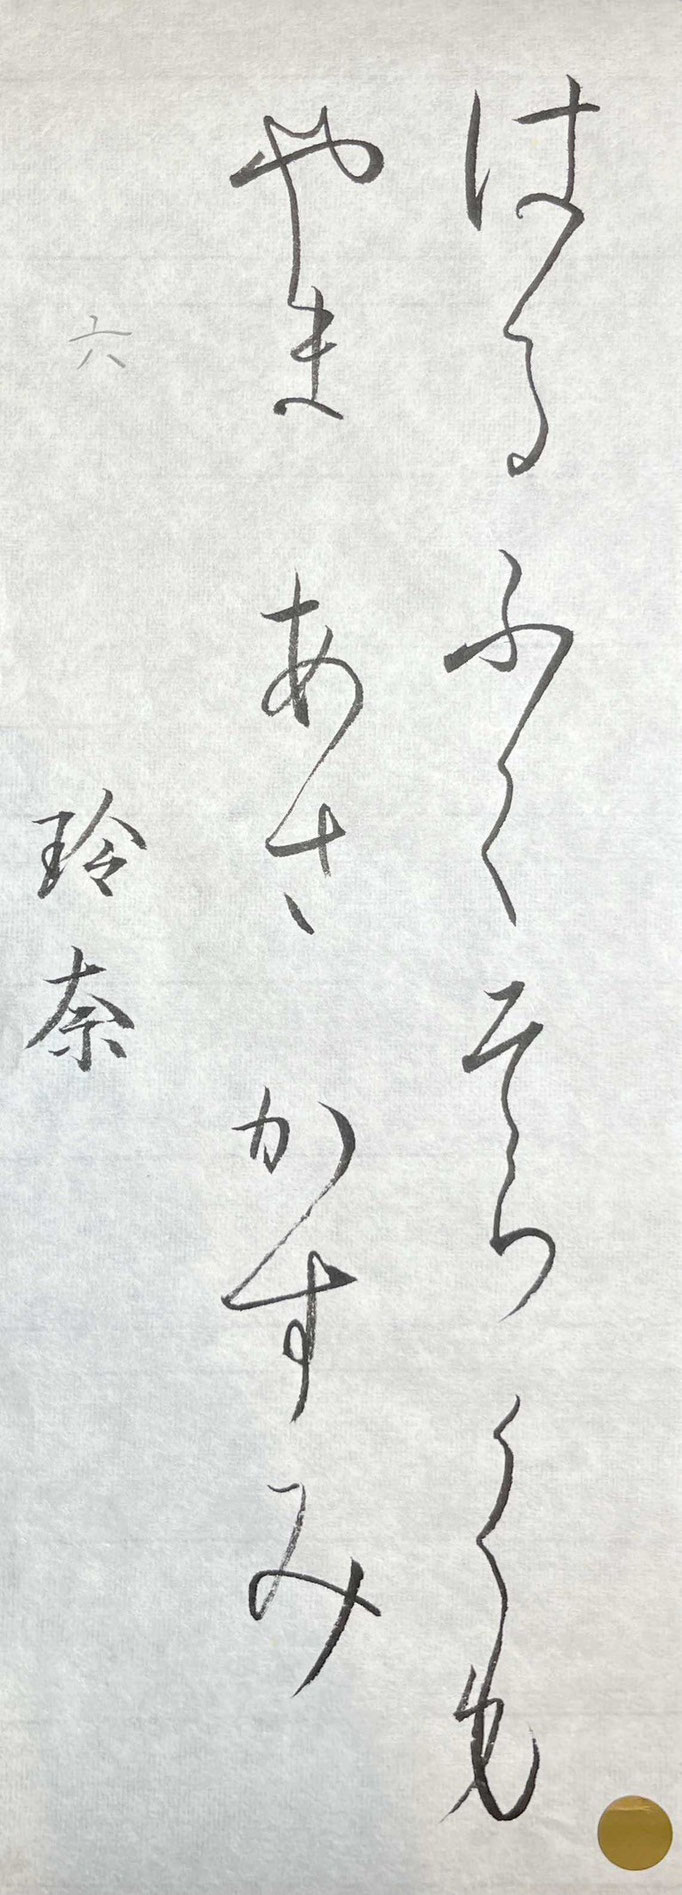 はる ふく そら くも
やま あさ かすみ
六
玲奈